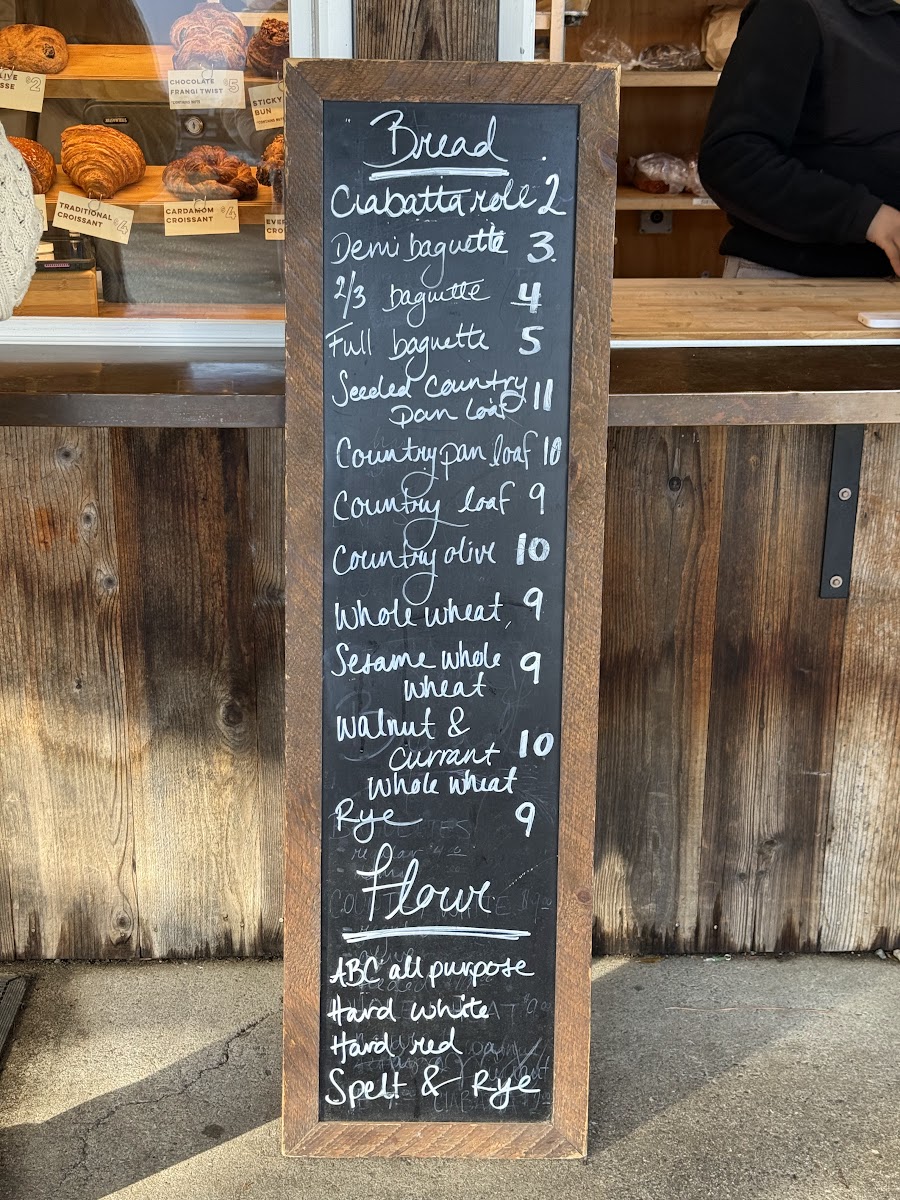 OLIVE
SSE $2
CHOCOLATE $5
FRANGI TWIST
*CONTAINS NUTS
STICKY
BUN
*CONTAINS NUTS
TRADITIONAL $4
CROISSANT
CARDAMOM $4
CROISSANT
EVE
CRO
Bread
Ciabatta role 2
Demi baguette 3.
2/3 baguette 4
Full baguette 5
Seeded Country 11
pan loaf
Country pan loaf 10
Country loaf 9
Country olive 10
Whole wheat, 9
Sesame whole 9
wheat
Walnut &
Currant 10
Whole wheat
Rye 9
Flour
ABC all purpose
Hard white
Hard red
Spelt & Rye